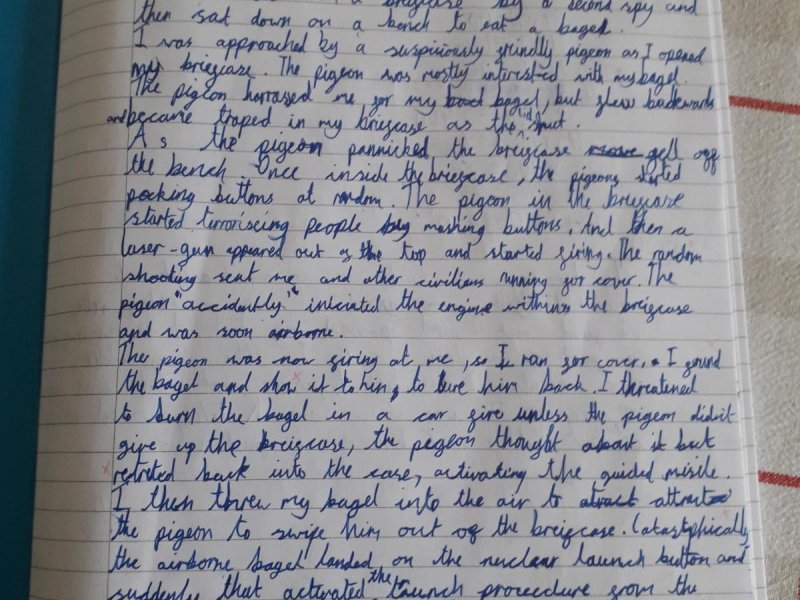 a briefcase by a second spy and
then sat down on a bench to eat a bagel.
I was approached by a suspiciously friendly pigeon as I opened
my briefcase. The pigeon was mostly interested with my bagel.
The pigeon harrased me for my bagel, but flew backwards
and became traped in my briefcase as the lid shut.
As the pigeon pannicked the briefcase fell off
the bench. Once inside the briefcase, the pigeons started
pecking buttons at random. The pigeon in the briefcase
started terroriseing people by mashing buttons. And then a
laser-gun appeared out of the top and started firing. The random
shooting sent me and other civilians running for cover. The
pigeon "accidently" iniciated the engine within the briefcase
and was soon airborne.
The pigeon was now firing at me, so I ran for cover. I found
the bagel and show it to him, to lure him back. I threatened
to burn the bagel in a car fire unless the pigeon didn't
give up the briefcase, the pigeon thought about it but
retrited back into the case, activating the guided misile.
I then threw my bagel into the air to attract
the pigeon to swipe him out of the briefcase. Catastphically
the airborne bagel landed on the nuclear launch button and
suddenly that activated the launch procedure from the